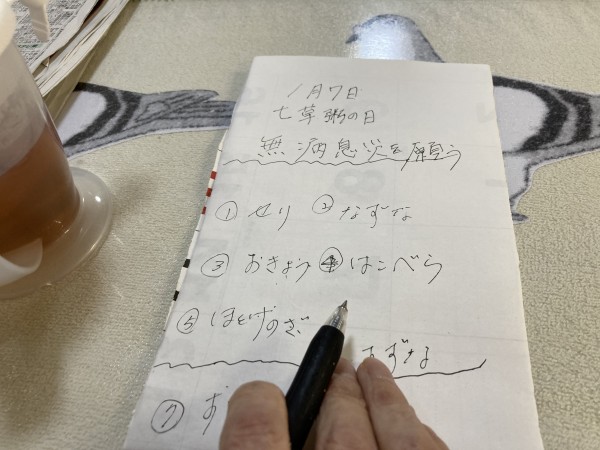 1月7日
七草粥の日
無病息災を願う
① せり ② なずな
③ おぎょう ④ はこべら
⑤ ほとけのざ
すずな
⑦ す